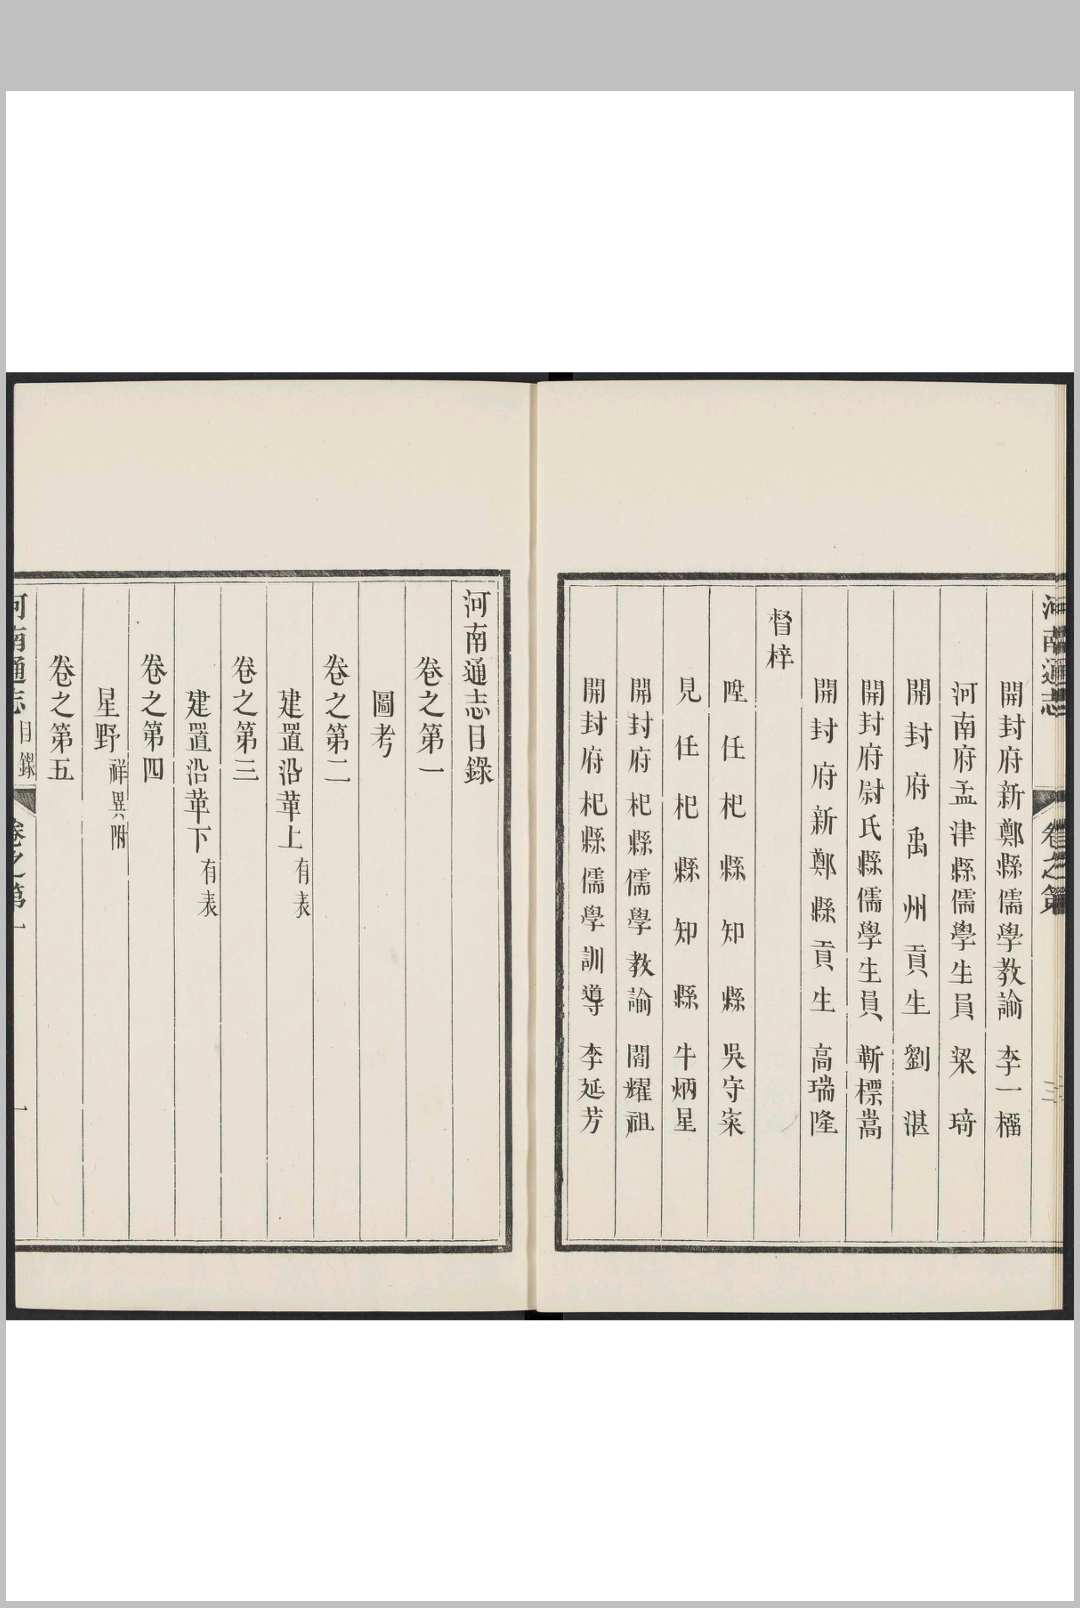 河南通志
卷之第
三
開封府新鄭縣儒學教諭 李一橊
河南府孟津縣儒學生員 梁琦
開封府禹州貢生 劉湛
開封府尉氏縣儒學生員 靳標嵩
開封府新鄭縣貢生 高瑞隆
督梓
陞任杞縣知縣 吳守寀
見任杞縣知縣 牛炳星
開封府杞縣儒學教諭 閻耀祖
開封府杞縣儒學訓導 李延芳
河南通志目錄
卷之第一
圖考
卷之第二
建置沿革上 有表
卷之第三
建置沿革下 有表
卷之第四
星野 祥異附
卷之第五
河南通志 目錄
卷之第一
一